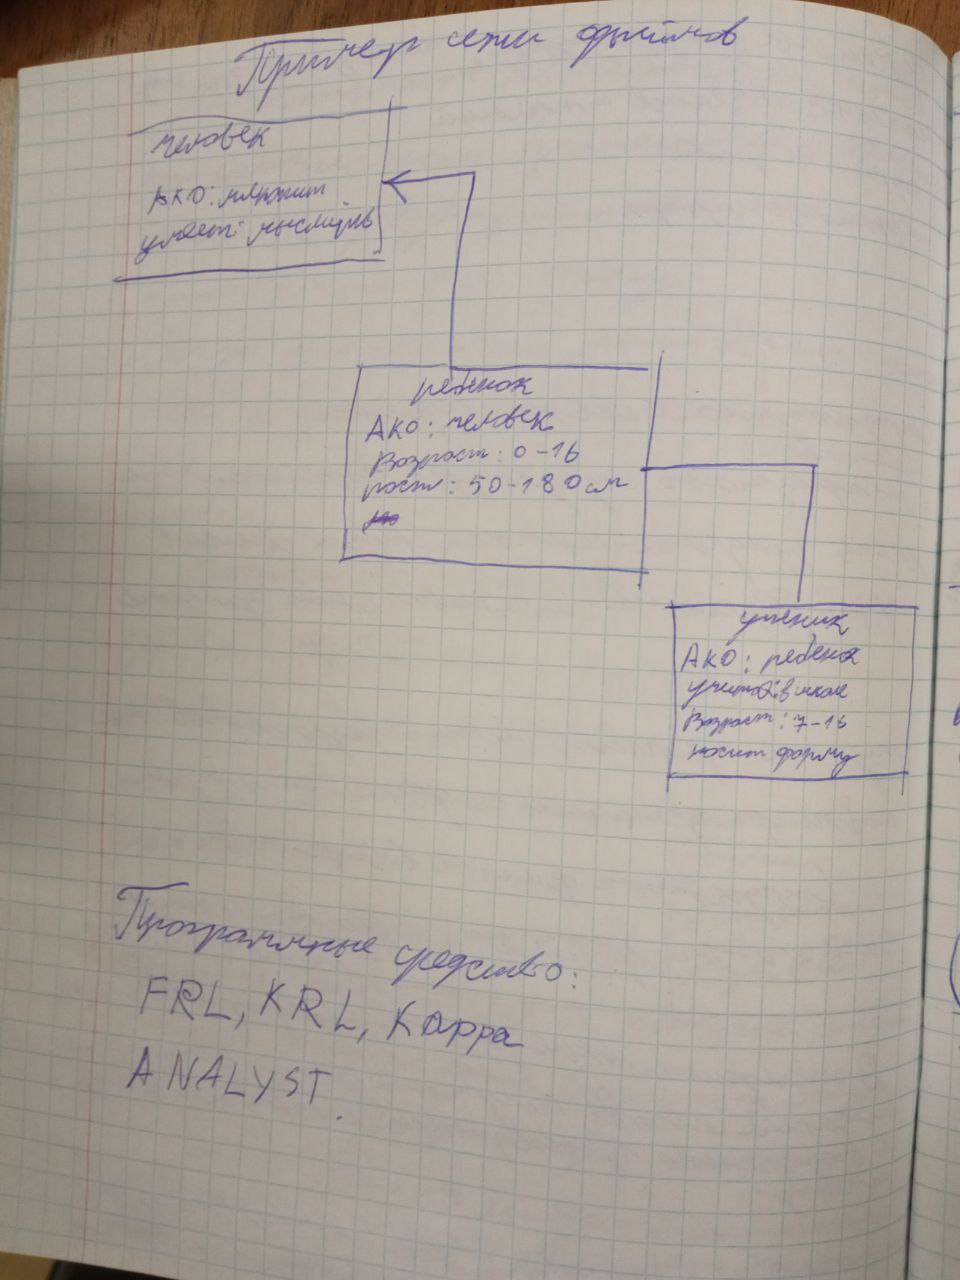 Пример сети фреймов
человек
АКО: млекопит
умеет: мыслить
ребенок
АКО: человек
Возраст: 0-16
рост: 50-180 см
ученик
АКО: ребенок
учится: в школе
Возраст: 7-16
носит форму
Программные средства:
FRL, KRL, Kappa
ANALYST.